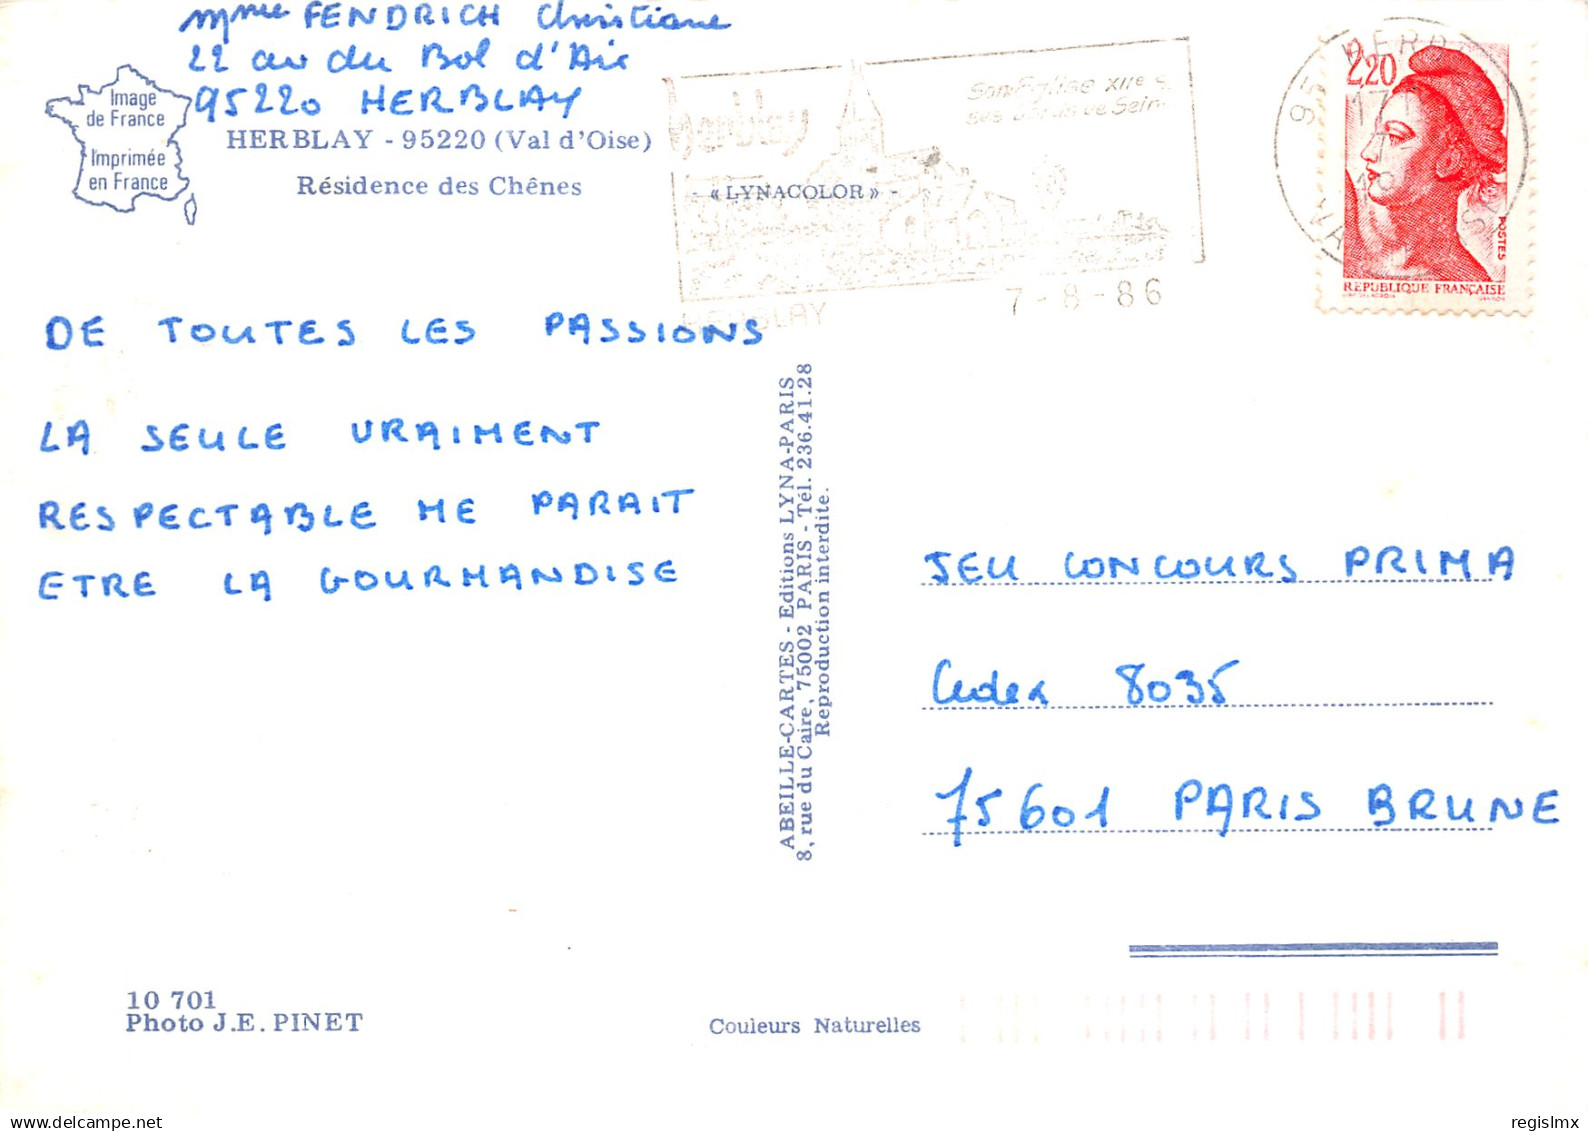 Mme FENDRICH Christiane
22 av du Bol d'Air
95220 HERBLAY
Image
de France
Imprimée
en France
HERBLAY - 95220 (Val d'Oise)
Résidence des Chênes
- « LYNACOLOR » -
Herblay
Son Eglise XIIe S.
ses bords de Seine
HERBLAY
7-8-86
95 HERB
17
VA
2,20
POSTES
REPUBLIQUE FRANÇAISE
DE TOUTES LES PASSIONS
LA SEULE VRAIMENT
RESPECTABLE ME PARAIT
ETRE LA GOURMANDISE
ABEILLE-CARTES - Editions LYNA-PARIS
8, rue du Caire, 75002 PARIS - Tél. 236.41.28
Reproduction interdite.
JEU CONCOURS PRIMA
Cedex 8035
75601 PARIS BRUNE
10 701
Photo J.E. PINET
Couleurs Naturelles
regislmx